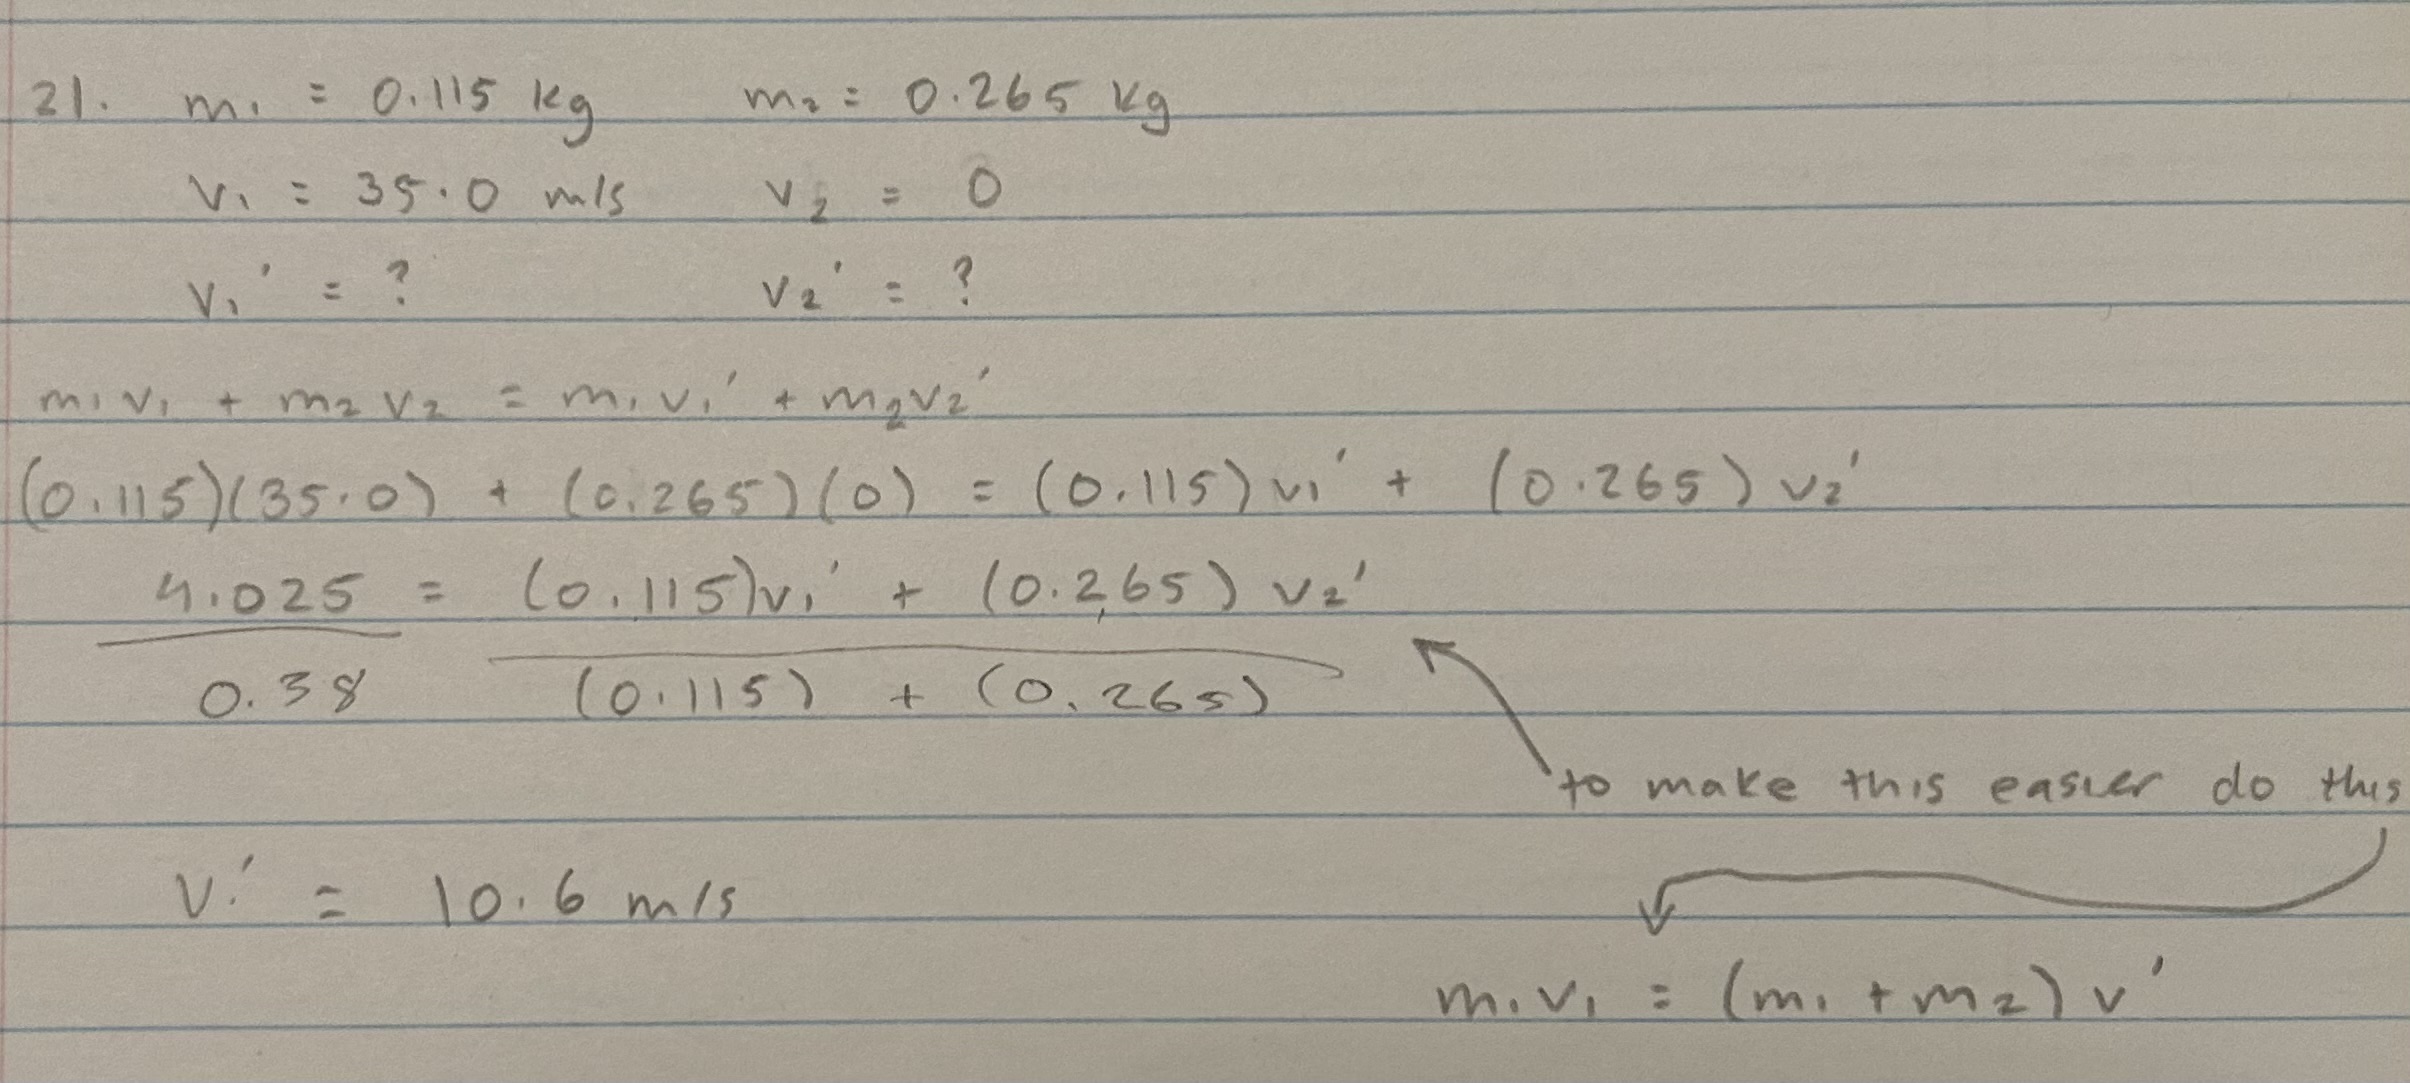 21. m₁ = 0.115 kg m₂ = 0.265 kg
v₁ = 35.0 m/s v₂ = 0
v₁' = ? v₂' = ?
m₁v₁ + m₂v₂ = m₁v₁' + m₂v₂'
(0.115)(35.0) + (0.265)(0) = (0.115)v₁' + (0.265)v₂'
4.025 = (0.115)v₁' + (0.265)v₂'
0.38 (0.115) + (0.265)
to make this easier do this
v' = 10.6 m/s
m₁v₁ = (m₁ + m₂)v'